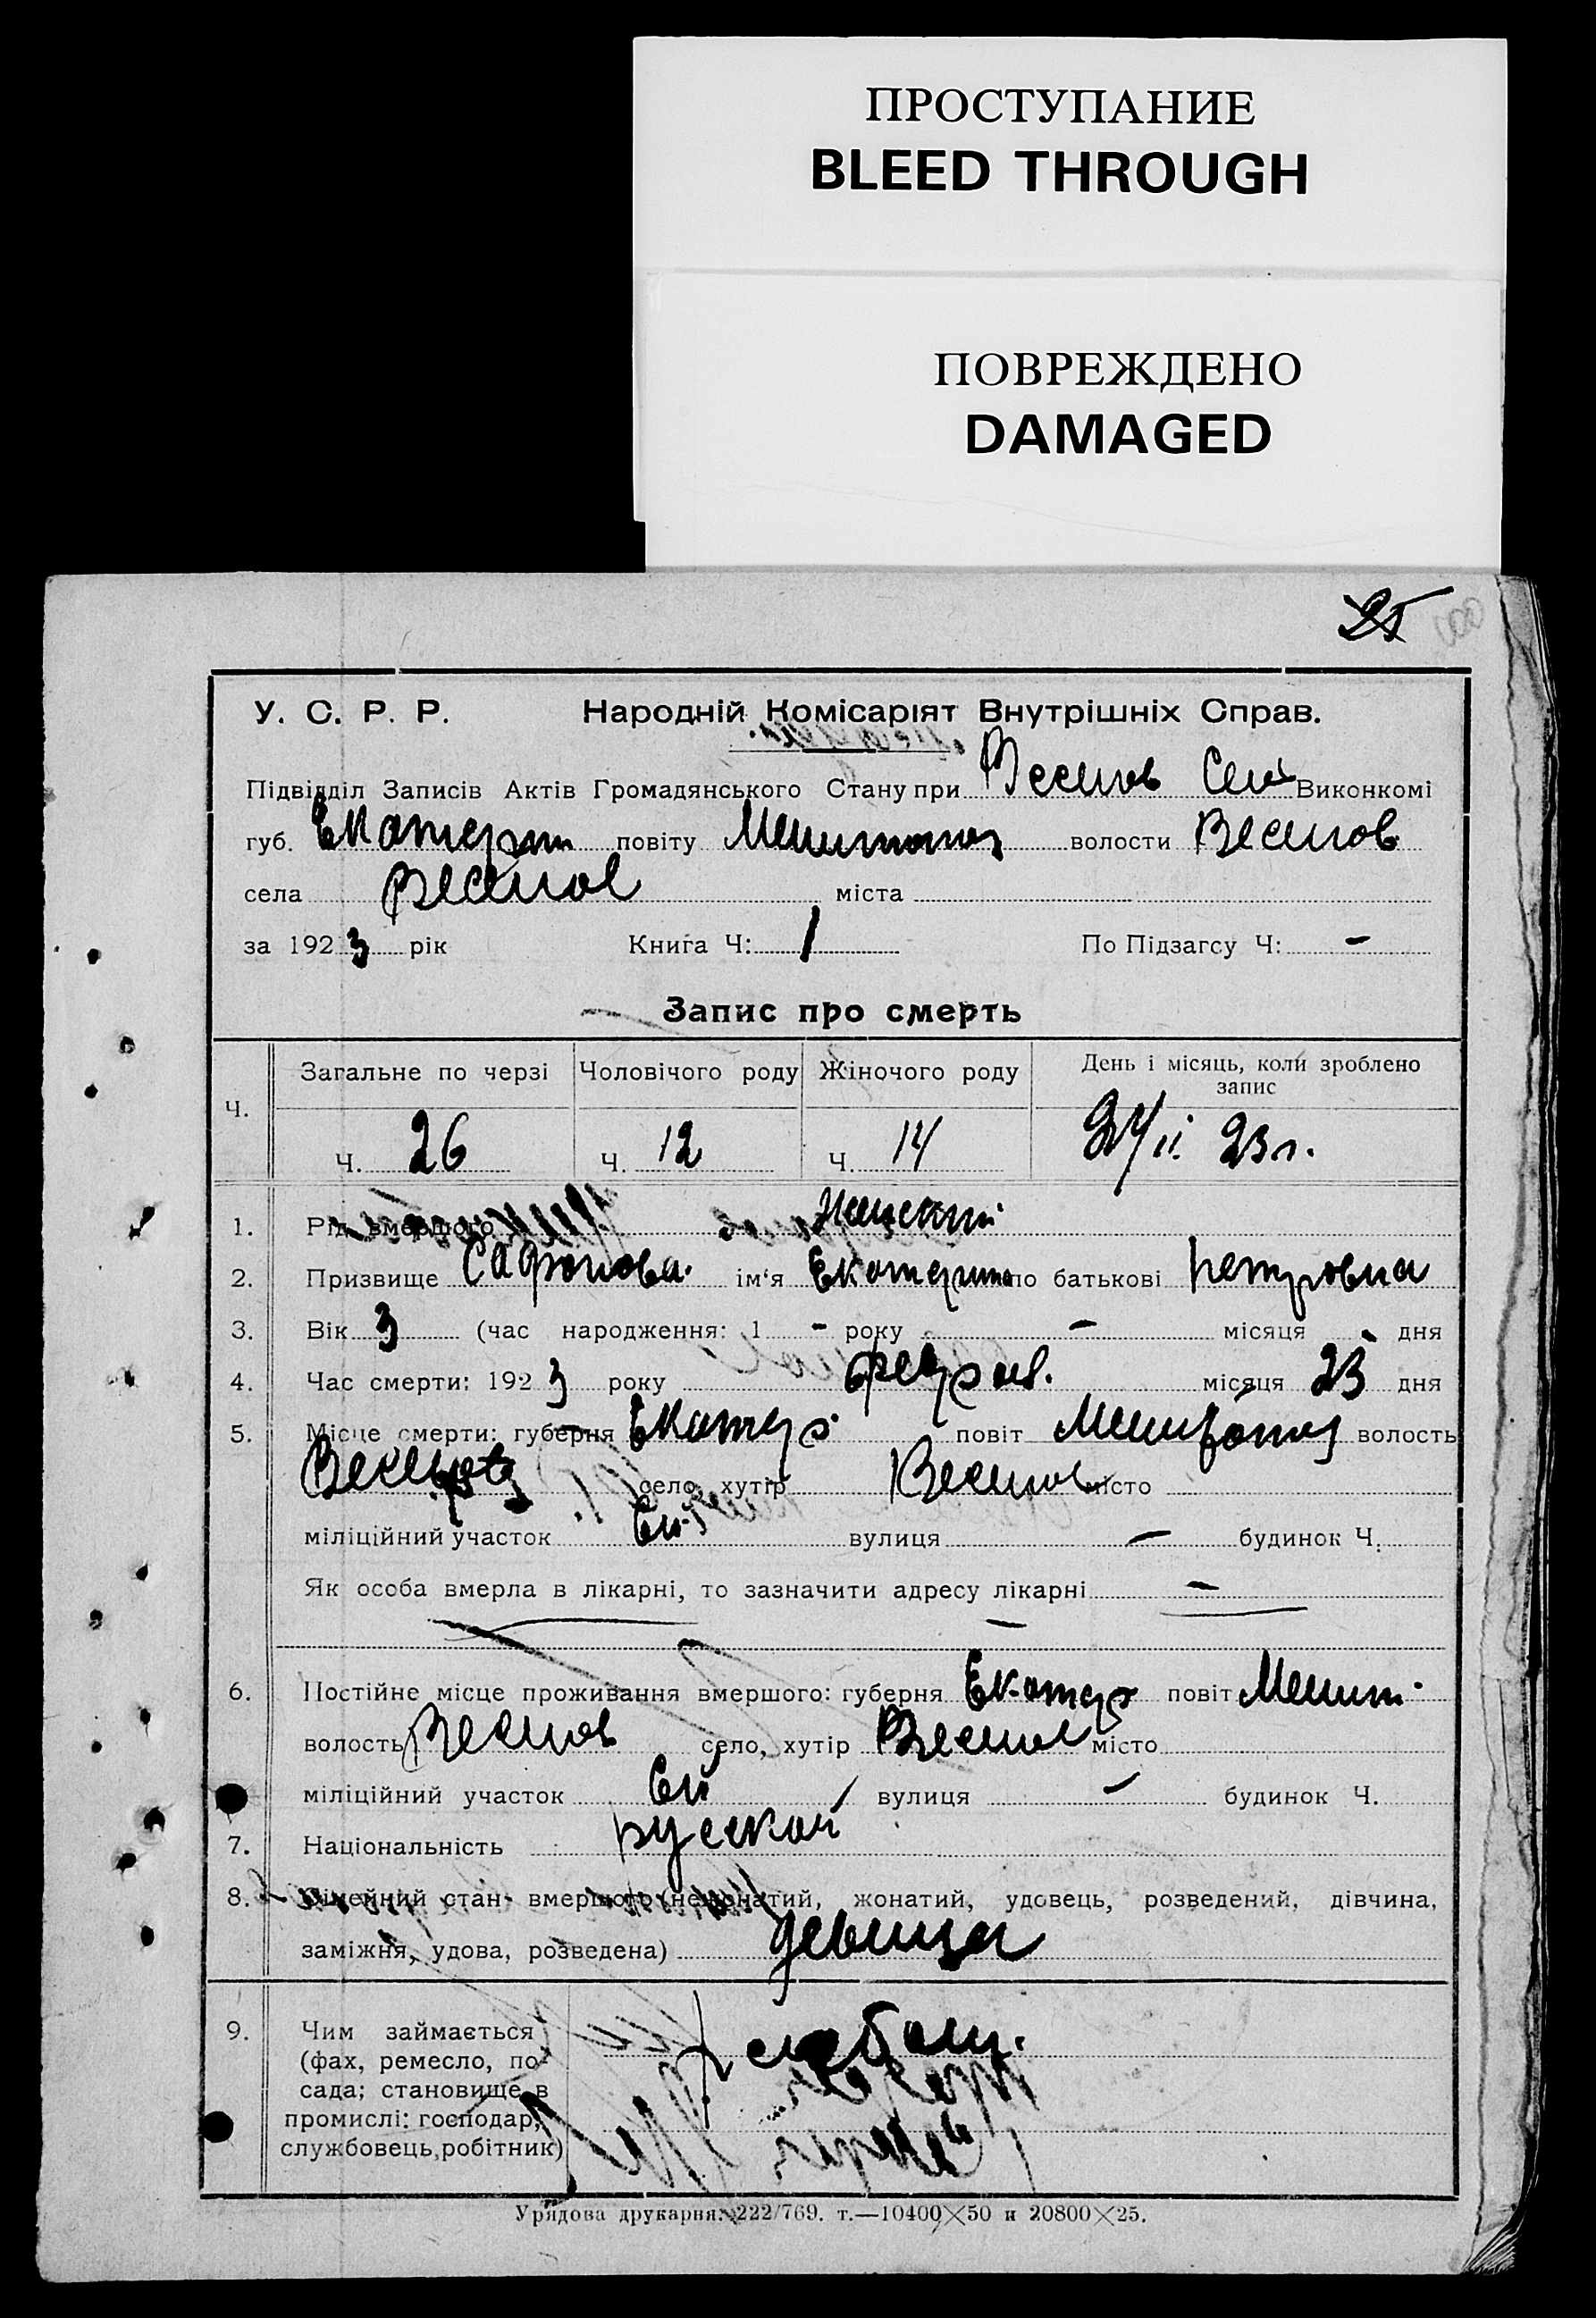 ПРОСТУПАНИЕ
BLEED THROUGH
ПОВРЕЖДЕНО
DAMAGED
25
У. С. Р. Р. Народній Комісаріят Внутрішніх Справ.
Підвідділ Записів Актів Громадянського Стану при Веселов Сель Виконкомі
губ. Екатерин повіту Мелитопол волости Веселов
села Веселое міста
за 1923 рік Книга Ч: 1 По Підзагсу Ч: -
Запис про смерть
Ч. Загальне по черзі Чоловічого роду Жіночого роду День і місяць, коли зроблено запис
Ч. 26 Ч. 12 Ч. 14 24/II 23 г.
1. Рід вмершого женский
2. Призвище Сафонова. ім'я Екатерина по батькові Петровна
3. Вік 3 (час народження: 1 - року - місяця дня
4. Час смерти: 1923 року феврал. місяця 23 дня
5. Місце смерти: губерня Екатер. повіт Мелитопол волость
село, хутір Веселое місто
міліційний участок вулиця — будинок Ч.
Як особа вмерла в лікарні, то зазначити адресу лікарні —
6. Постійне місце проживання вмершого: губерня Екатер повіт Мелит.
волость Веселов село, хутір Веселое місто
міліційний участок вулиця — будинок Ч.
7. Національність русской
8. Сімейний стан вмершого (нежонатий, жонатий, удовець, розведений, дівчина,
заміжня, удова, розведена) девица
9. Чим займається
(фах, ремесло, по-
сада; становище в
промислі: господар,
службовець, робітник)
Урядова друкарня. 222/769. т.—10400×50 и 20800×25.